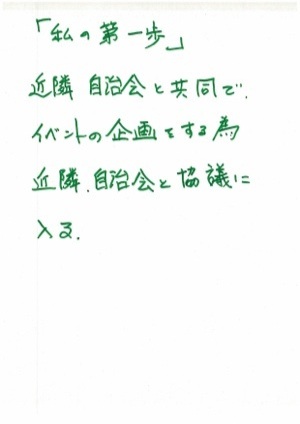 「私の第一歩」
近隣自治会と共同で、
イベントの企画をする為
近隣、自治会と協議に
入る。